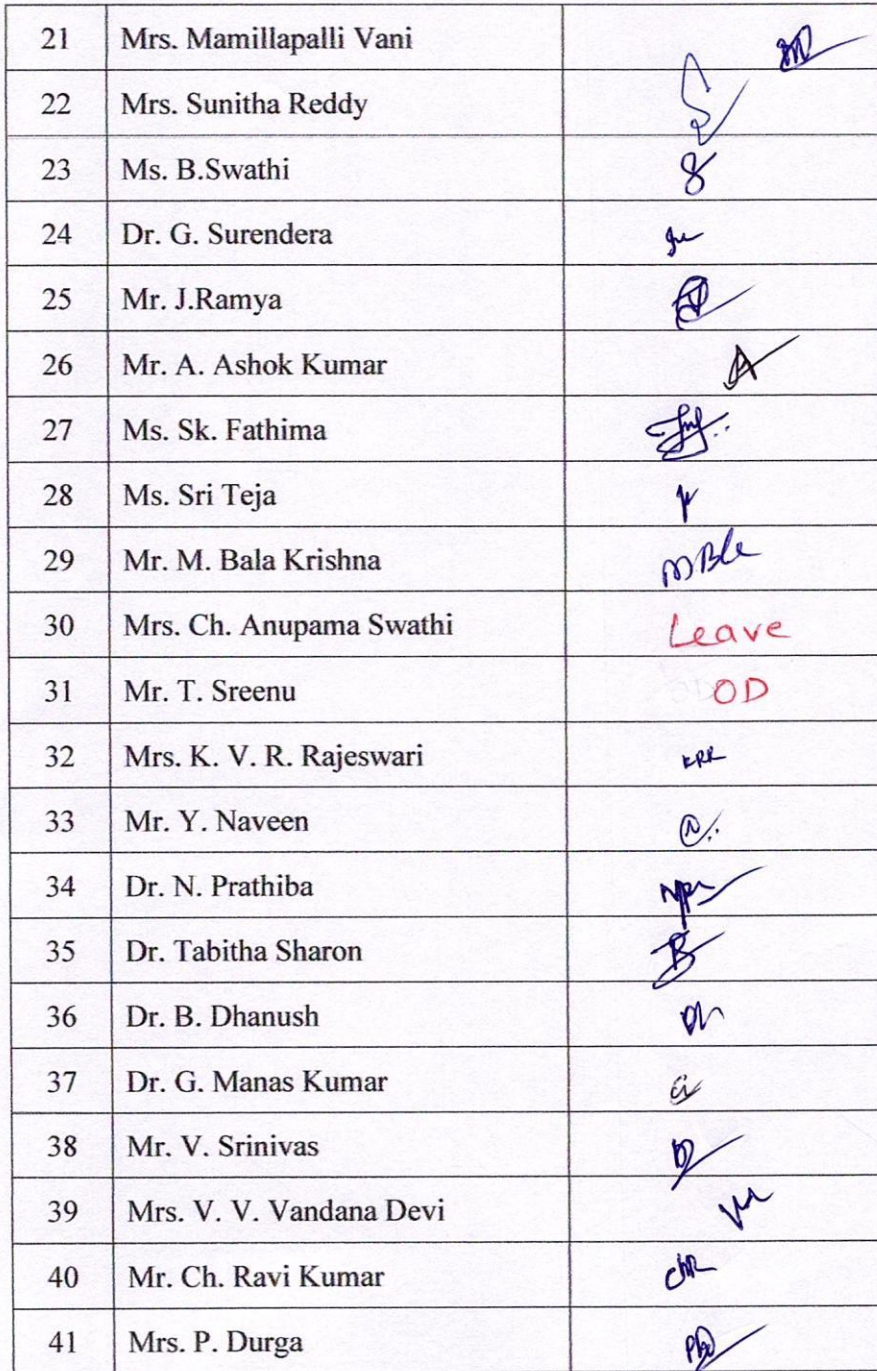 21 Mrs. Mamillapalli Vani
22 Mrs. Sunitha Reddy
23 Ms. B.Swathi
24 Dr. G. Surendera
25 Mr. J.Ramya
26 Mr. A. Ashok Kumar
27 Ms. Sk. Fathima
28 Ms. Sri Teja
29 Mr. M. Bala Krishna
30 Mrs. Ch. Anupama Swathi Leave
31 Mr. T. Sreenu OD
32 Mrs. K. V. R. Rajeswari
33 Mr. Y. Naveen
34 Dr. N. Prathiba
35 Dr. Tabitha Sharon
36 Dr. B. Dhanush
37 Dr. G. Manas Kumar
38 Mr. V. Srinivas
39 Mrs. V. V. Vandana Devi
40 Mr. Ch. Ravi Kumar
41 Mrs. P. Durga